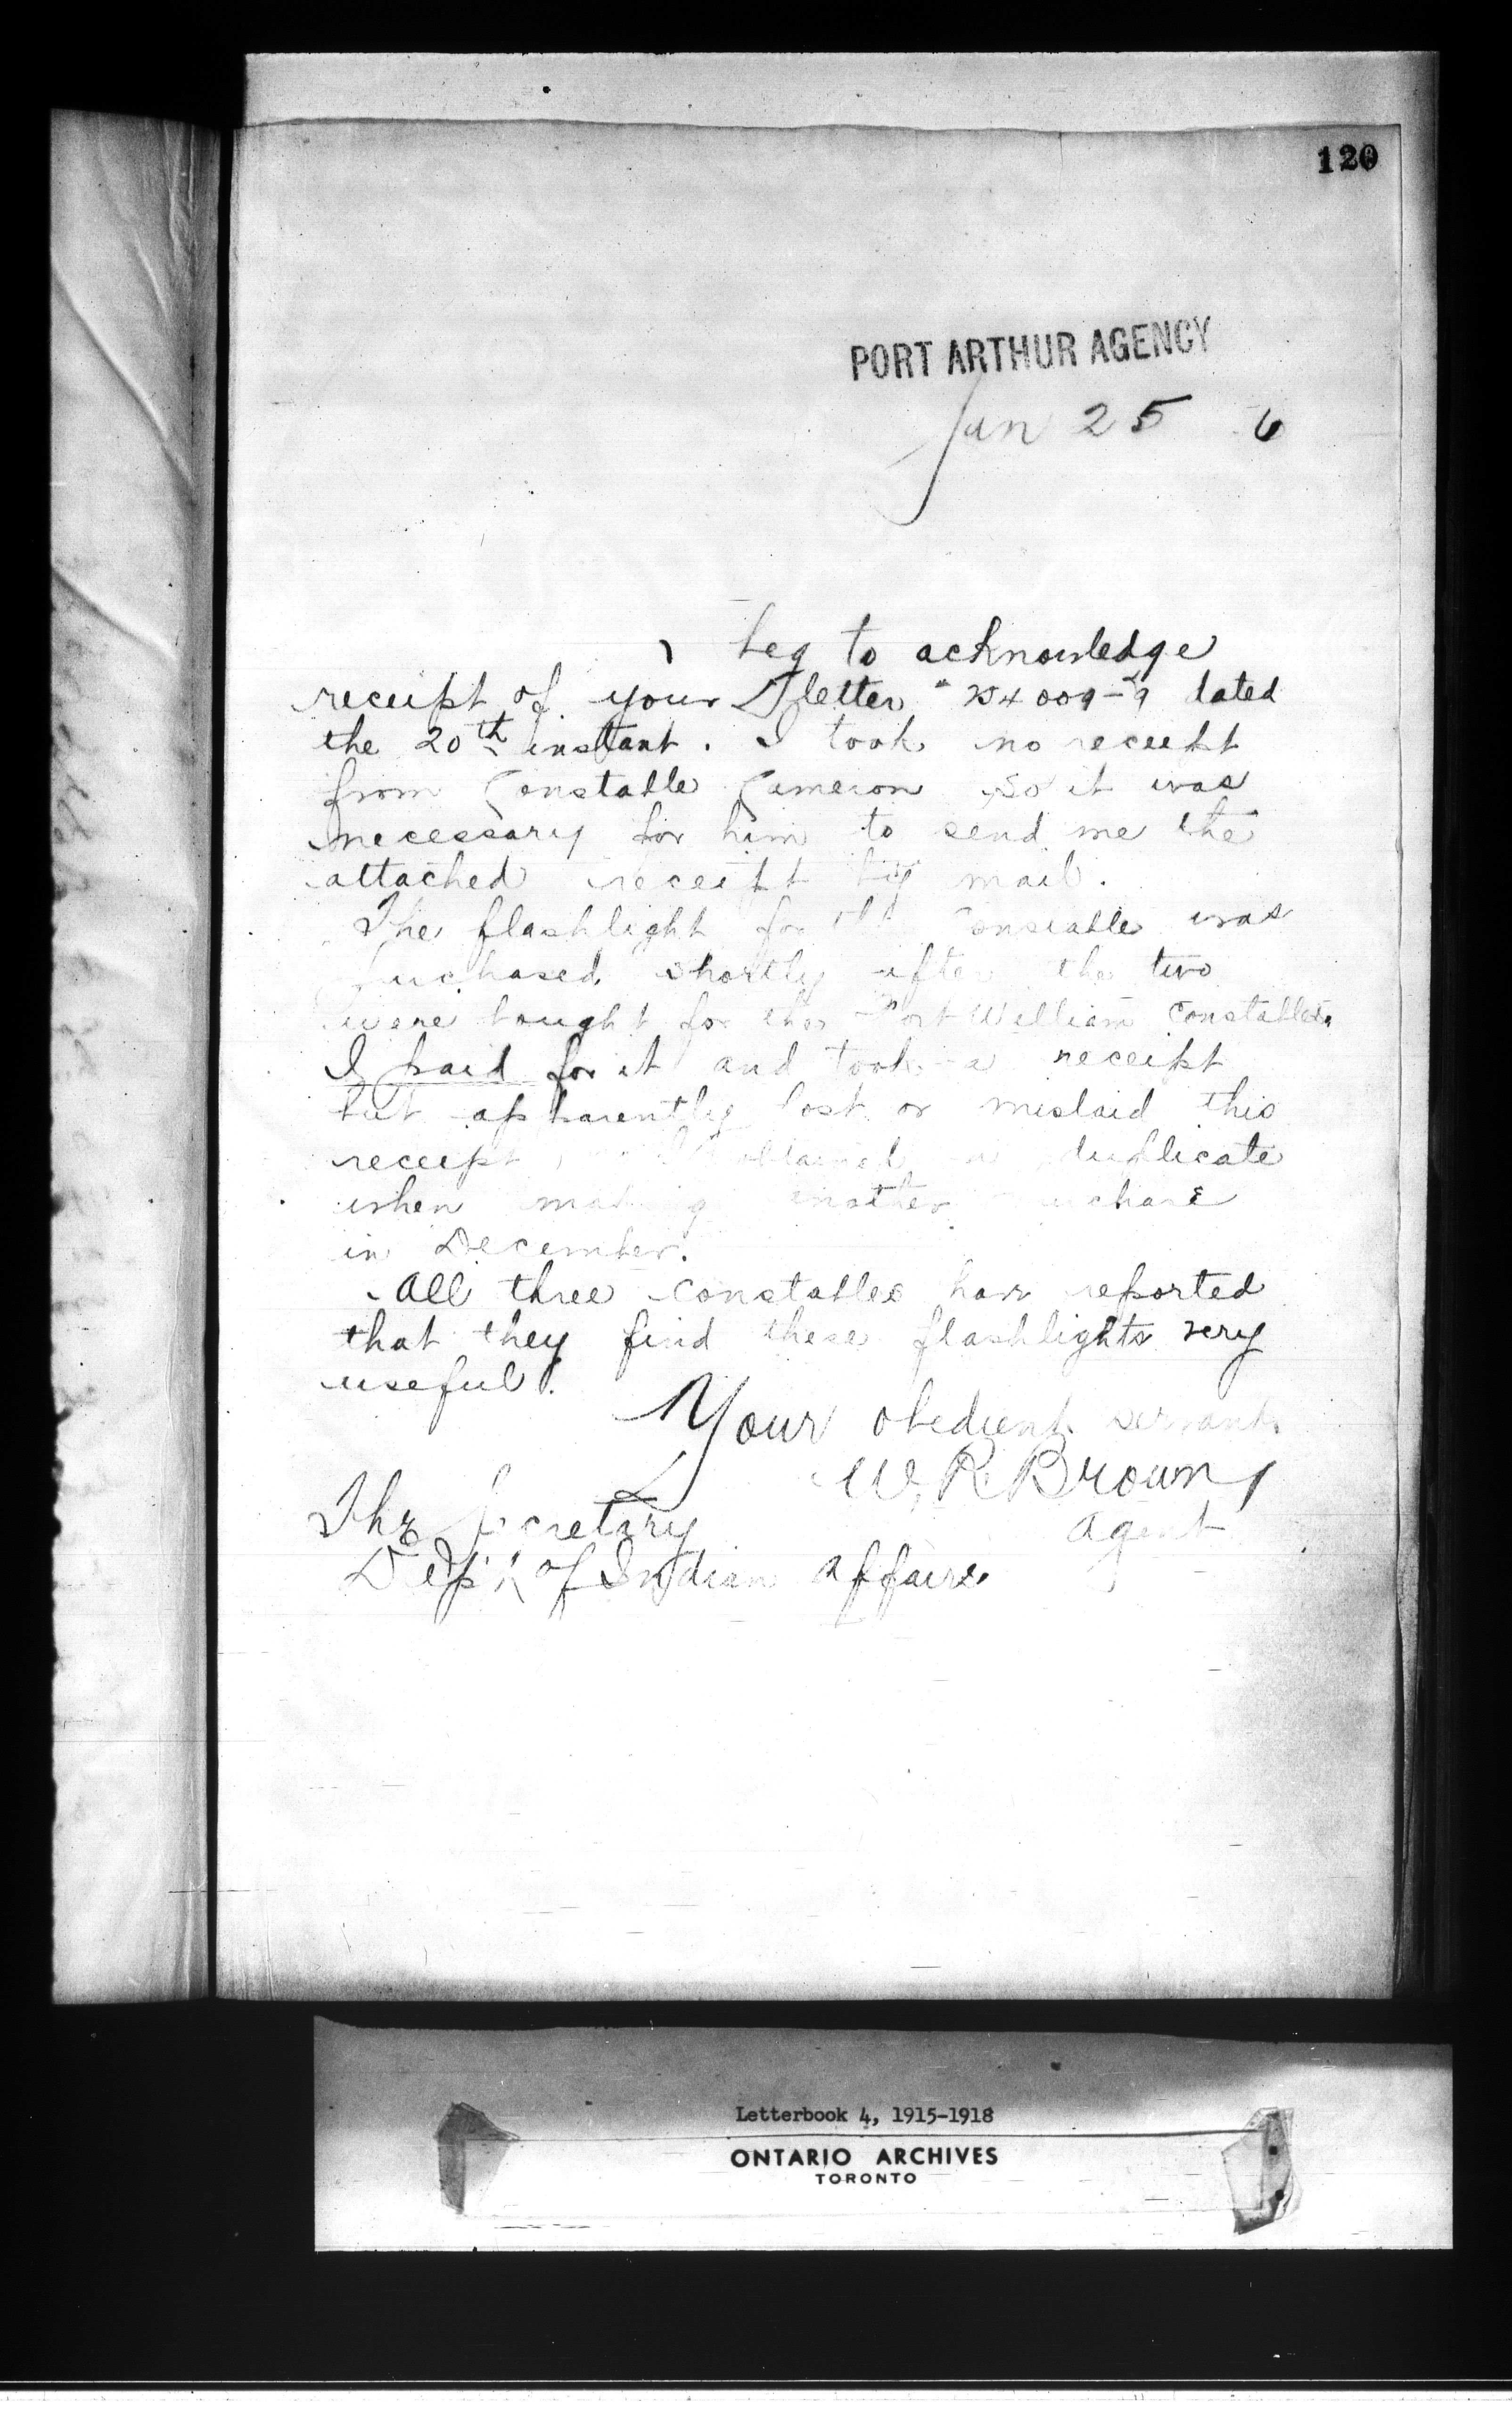 120
PORT ARTHUR AGENCY
Jan 25 6
beg to acknowledge
receipt of your letter dated
the 20th instant. I took no receipt
from Constable Cameron so it was
necessary for him to send me the
attached receipt by mail.
The flashlight for Constable was
purchased shortly after the two
were bought for the Fort William Constables.
I paid for it and took a receipt
but apparently lost or mislaid this
receipt obtained a duplicate
when making another purchase
in December.
All three constables have reported
that they find these flashlights very
useful.
Your obedient servant
W. R. Brown
Agent
The Secretary
Dep't of Indian Affairs
Letterbook 4, 1915-1918
ONTARIO ARCHIVES
TORONTO